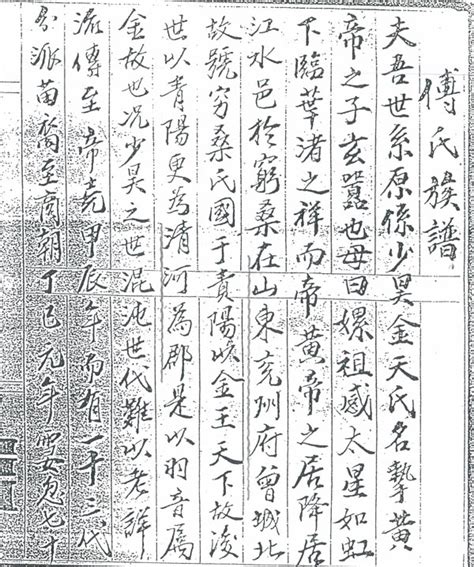 傅氏族譜
夫吾世系原係少昊金天氏名摯黃
帝之子玄囂也母曰嫘祖感太星如虹
下臨華渚之祥而帝黃帝之居降居
江水邑於窮桑在山東兗州府曾城北
故號穷桑氏國于責陽以金王天下故後
世以青陽更為清河為郡是以羽音属
金故也况少昊之世混沌世代難以考詳
流傳至帝堯甲辰年而有一千三代
分派苗裔至商朝丁巳元年